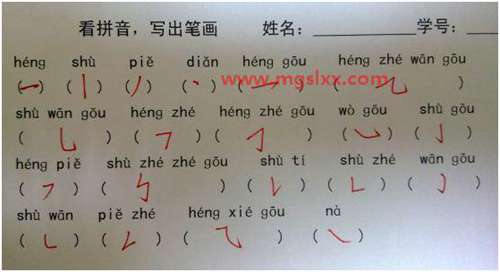 看拼音，写出笔画 姓名： 学号：
héng shù piě diǎn héng gōu héng zhé wān gōu
(一) (丨) (丿) (丶) (乛) (㇈)
www.mgslxx.com
shù wān gōu héng zhé héng zhé gōu wò gōu shù gōu
(乚) (𠃍) (𠃌) (㇃) (亅)
héng piě shù zhé zhé gōu shù tí shù zhé wān gōu
(㇇) (㇉) (𠄌) (𠃊) (㇁)
shù wān piě zhé héng xié gōu nà
(㇄) (𠃋) (⺄) (㇏)